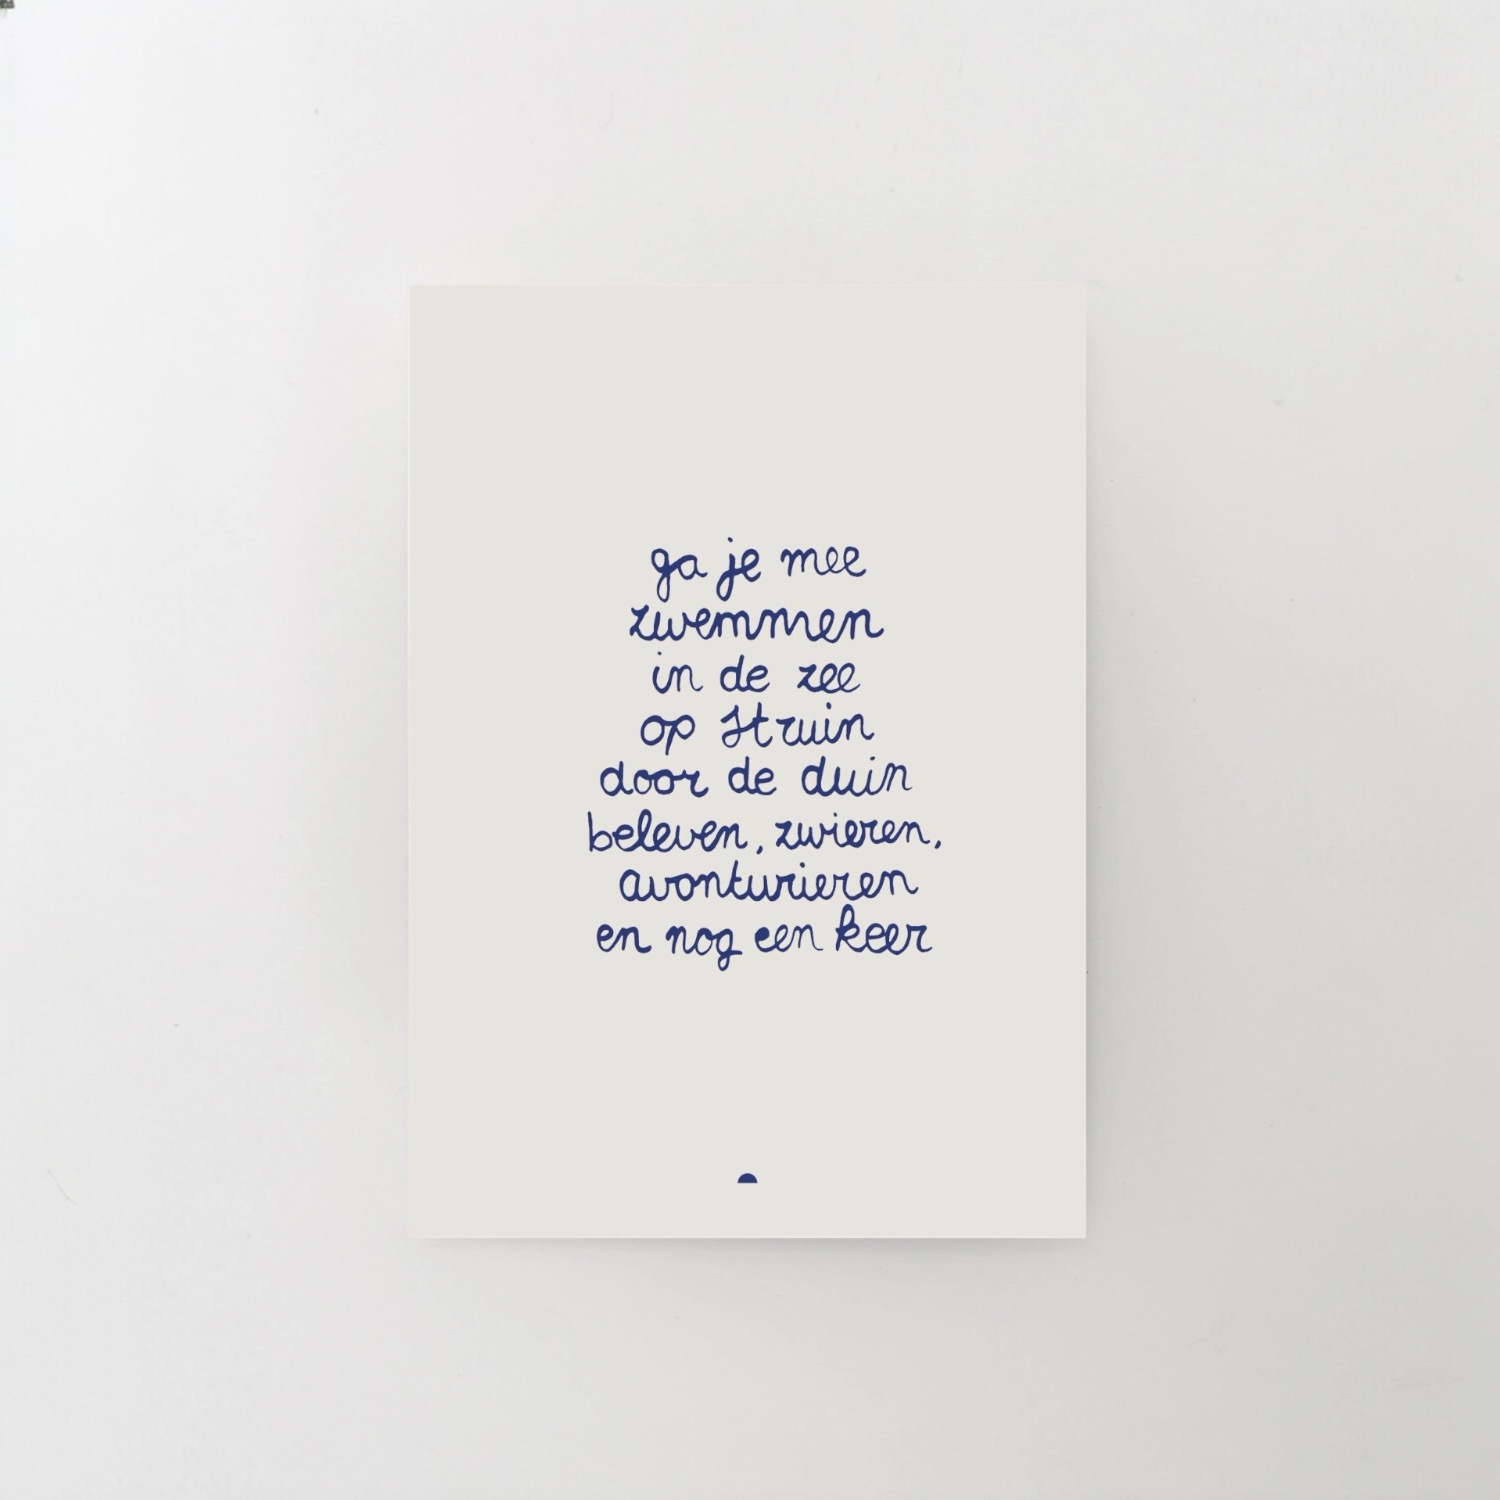 ga je mee
zwemmen
in de zee
op struin
door de duin
beleven, zwieren,
avonturieren
en nog een keer